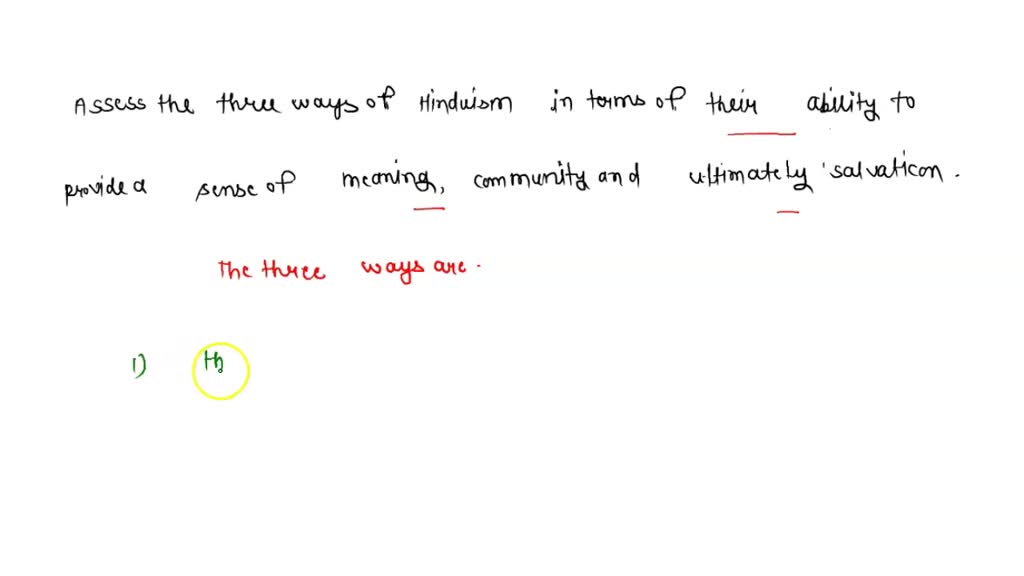 Assess the three ways of Hinduism in terms of their ability to
provide a sense of meaning, community and ultimately salvaticon.
The three ways are.
1) th